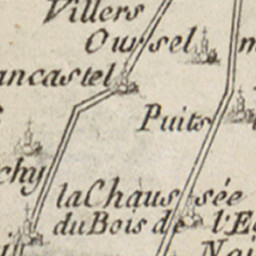 Villers
Oursel
ancastel
Puits
chy
la Chaussée
du Bois de l'E